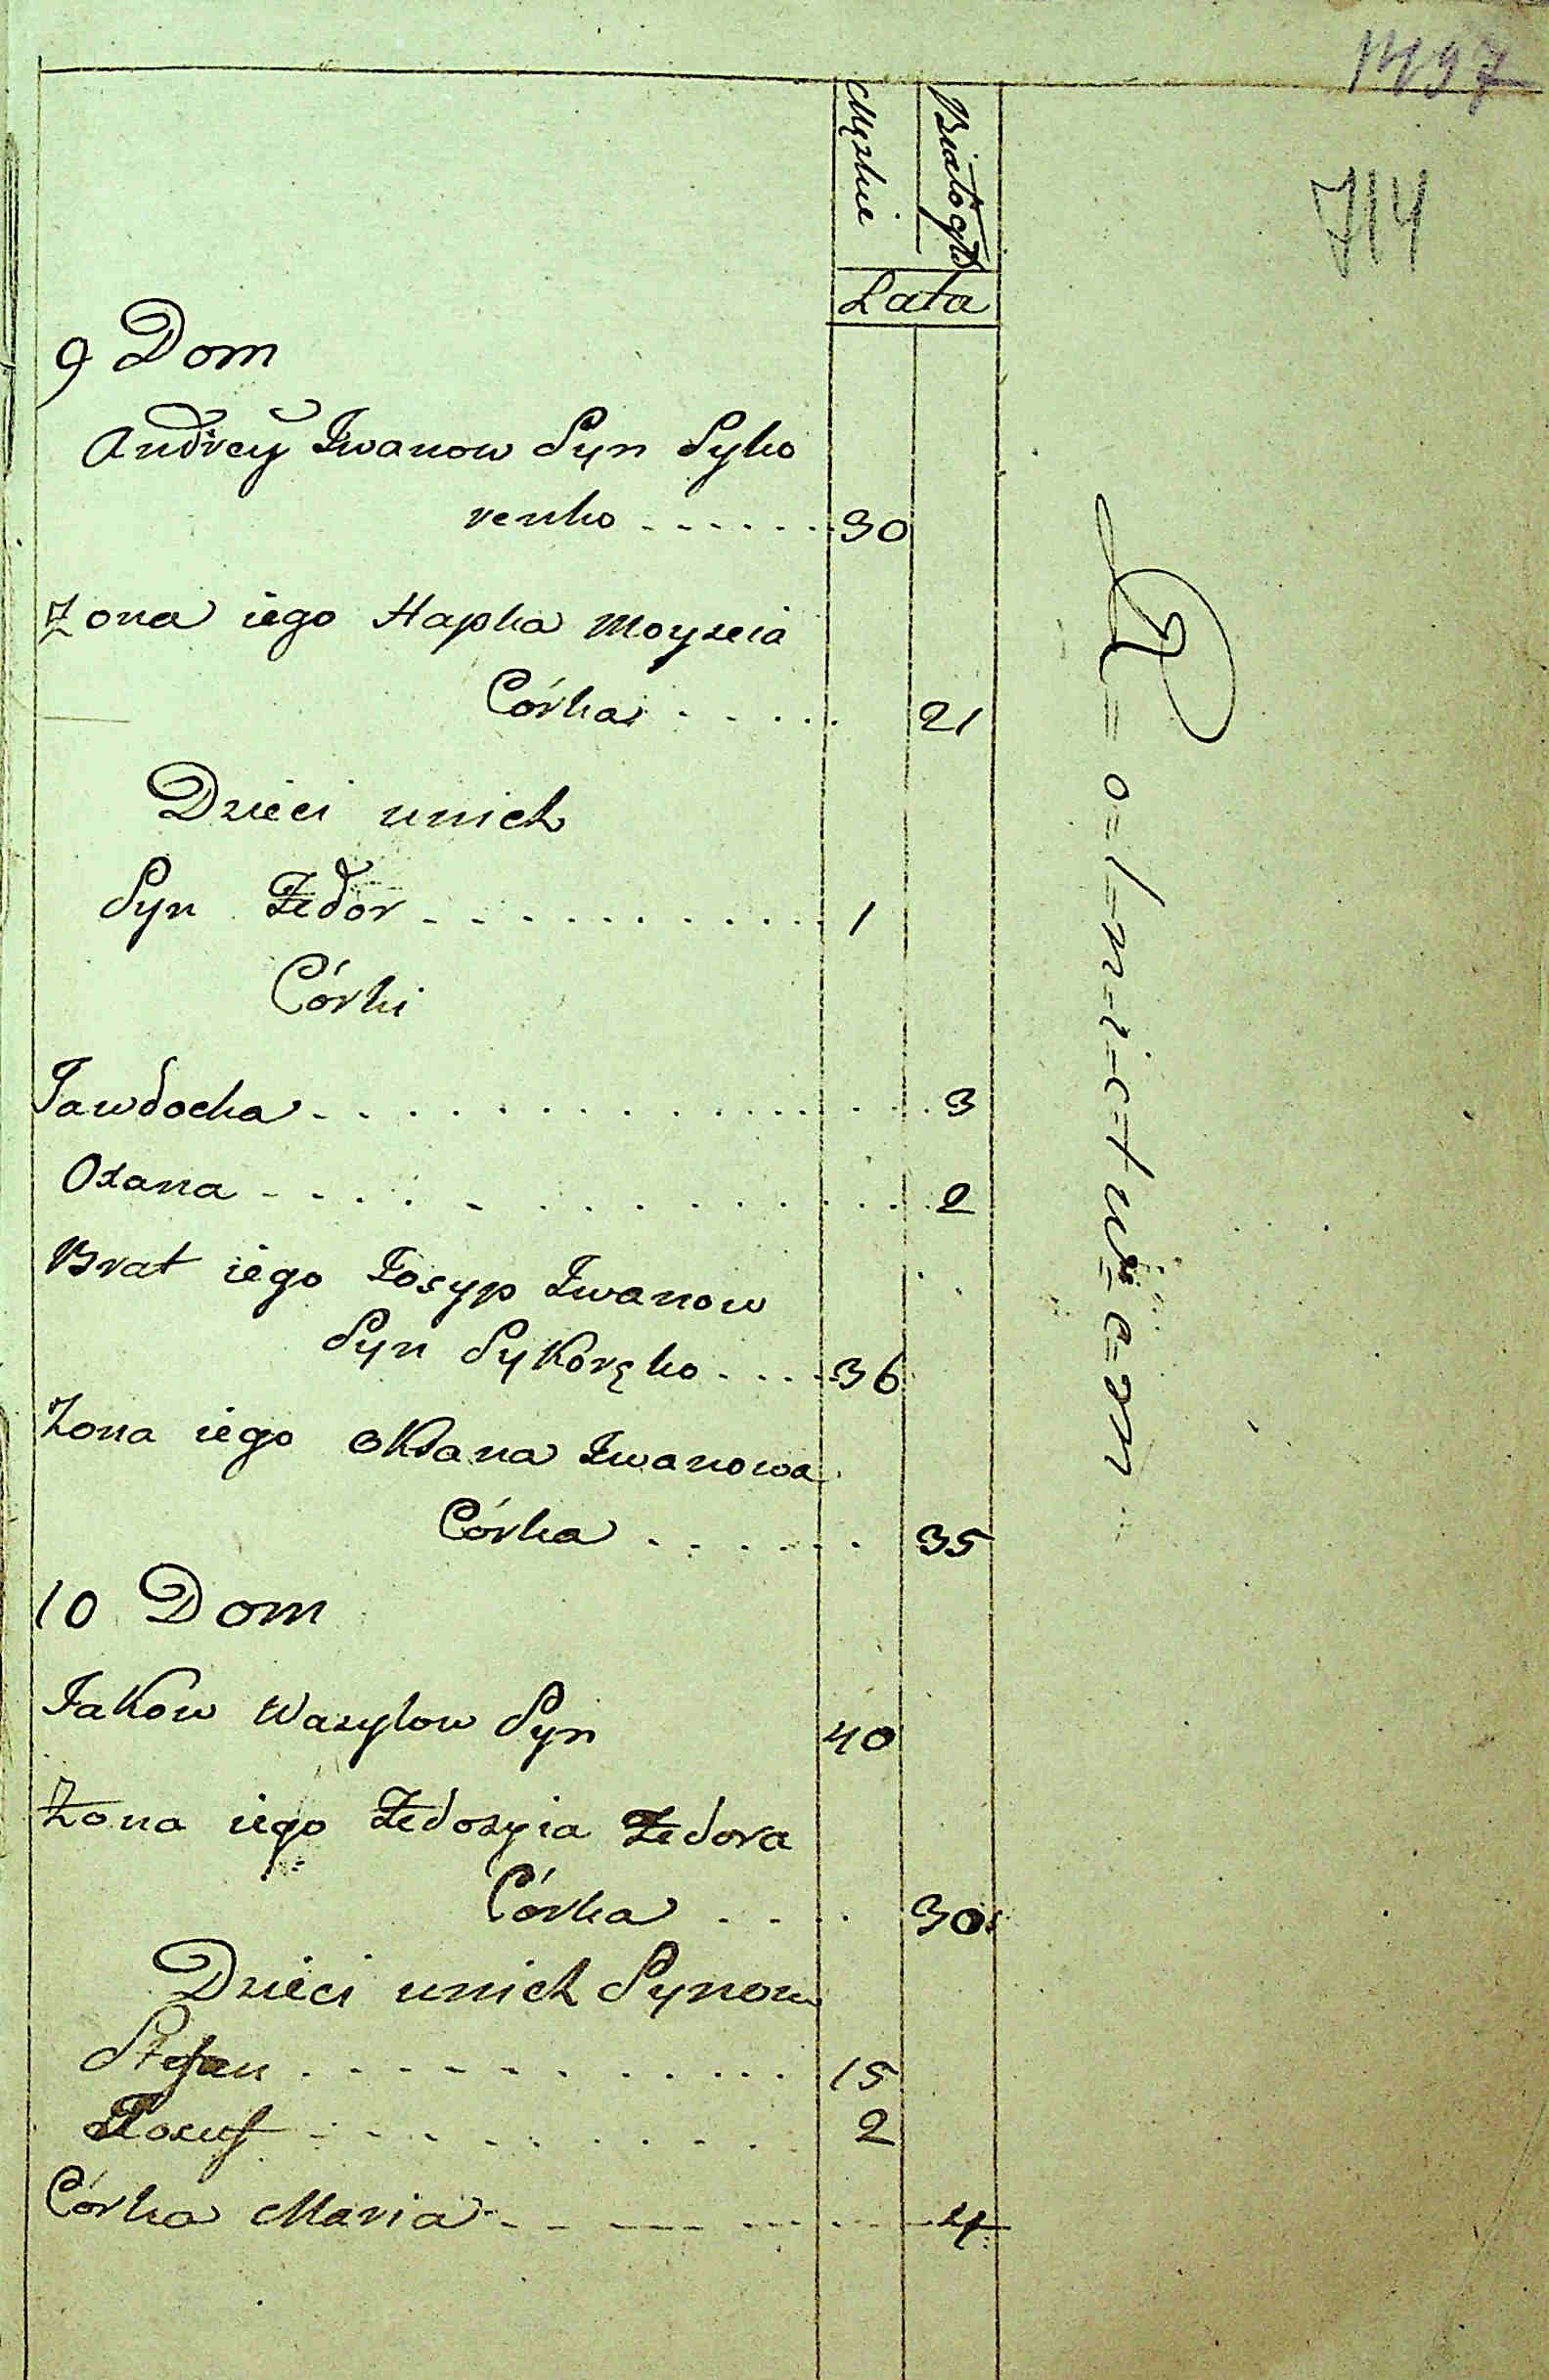 714
Męzkie
Białogł
Lata
9 Dom
Andrey Iwanow Syn Syko
renko - - - - - - 30
Zona iego Hapka Moyzeia
Córka - - - - - 21
Dzieci unich
Syn Fedor - - - - - - - - - - - 1
Córki
Jawdocha - - - - - - - - - - - - 3
Oxana - - - - - - - - - - - - - 2
Brat iego Iosyp Iwanow
Syn Sykoręko - - - - 36
Zona iego Oksana Iwanowa
Córka - - - - - 35
10 Dom
Iakow Wasylow Syn 40
Zona iego Fedosyia Fedora
Córka - - - - 30
Dzieci unich Synow
Stefan - - - - - - - - - - - 15
Iozuf - - - - - - - - - - 2
Córka Maria - - - - - - - - - - 4
R=o=l=n=i=c=t=w=e=m